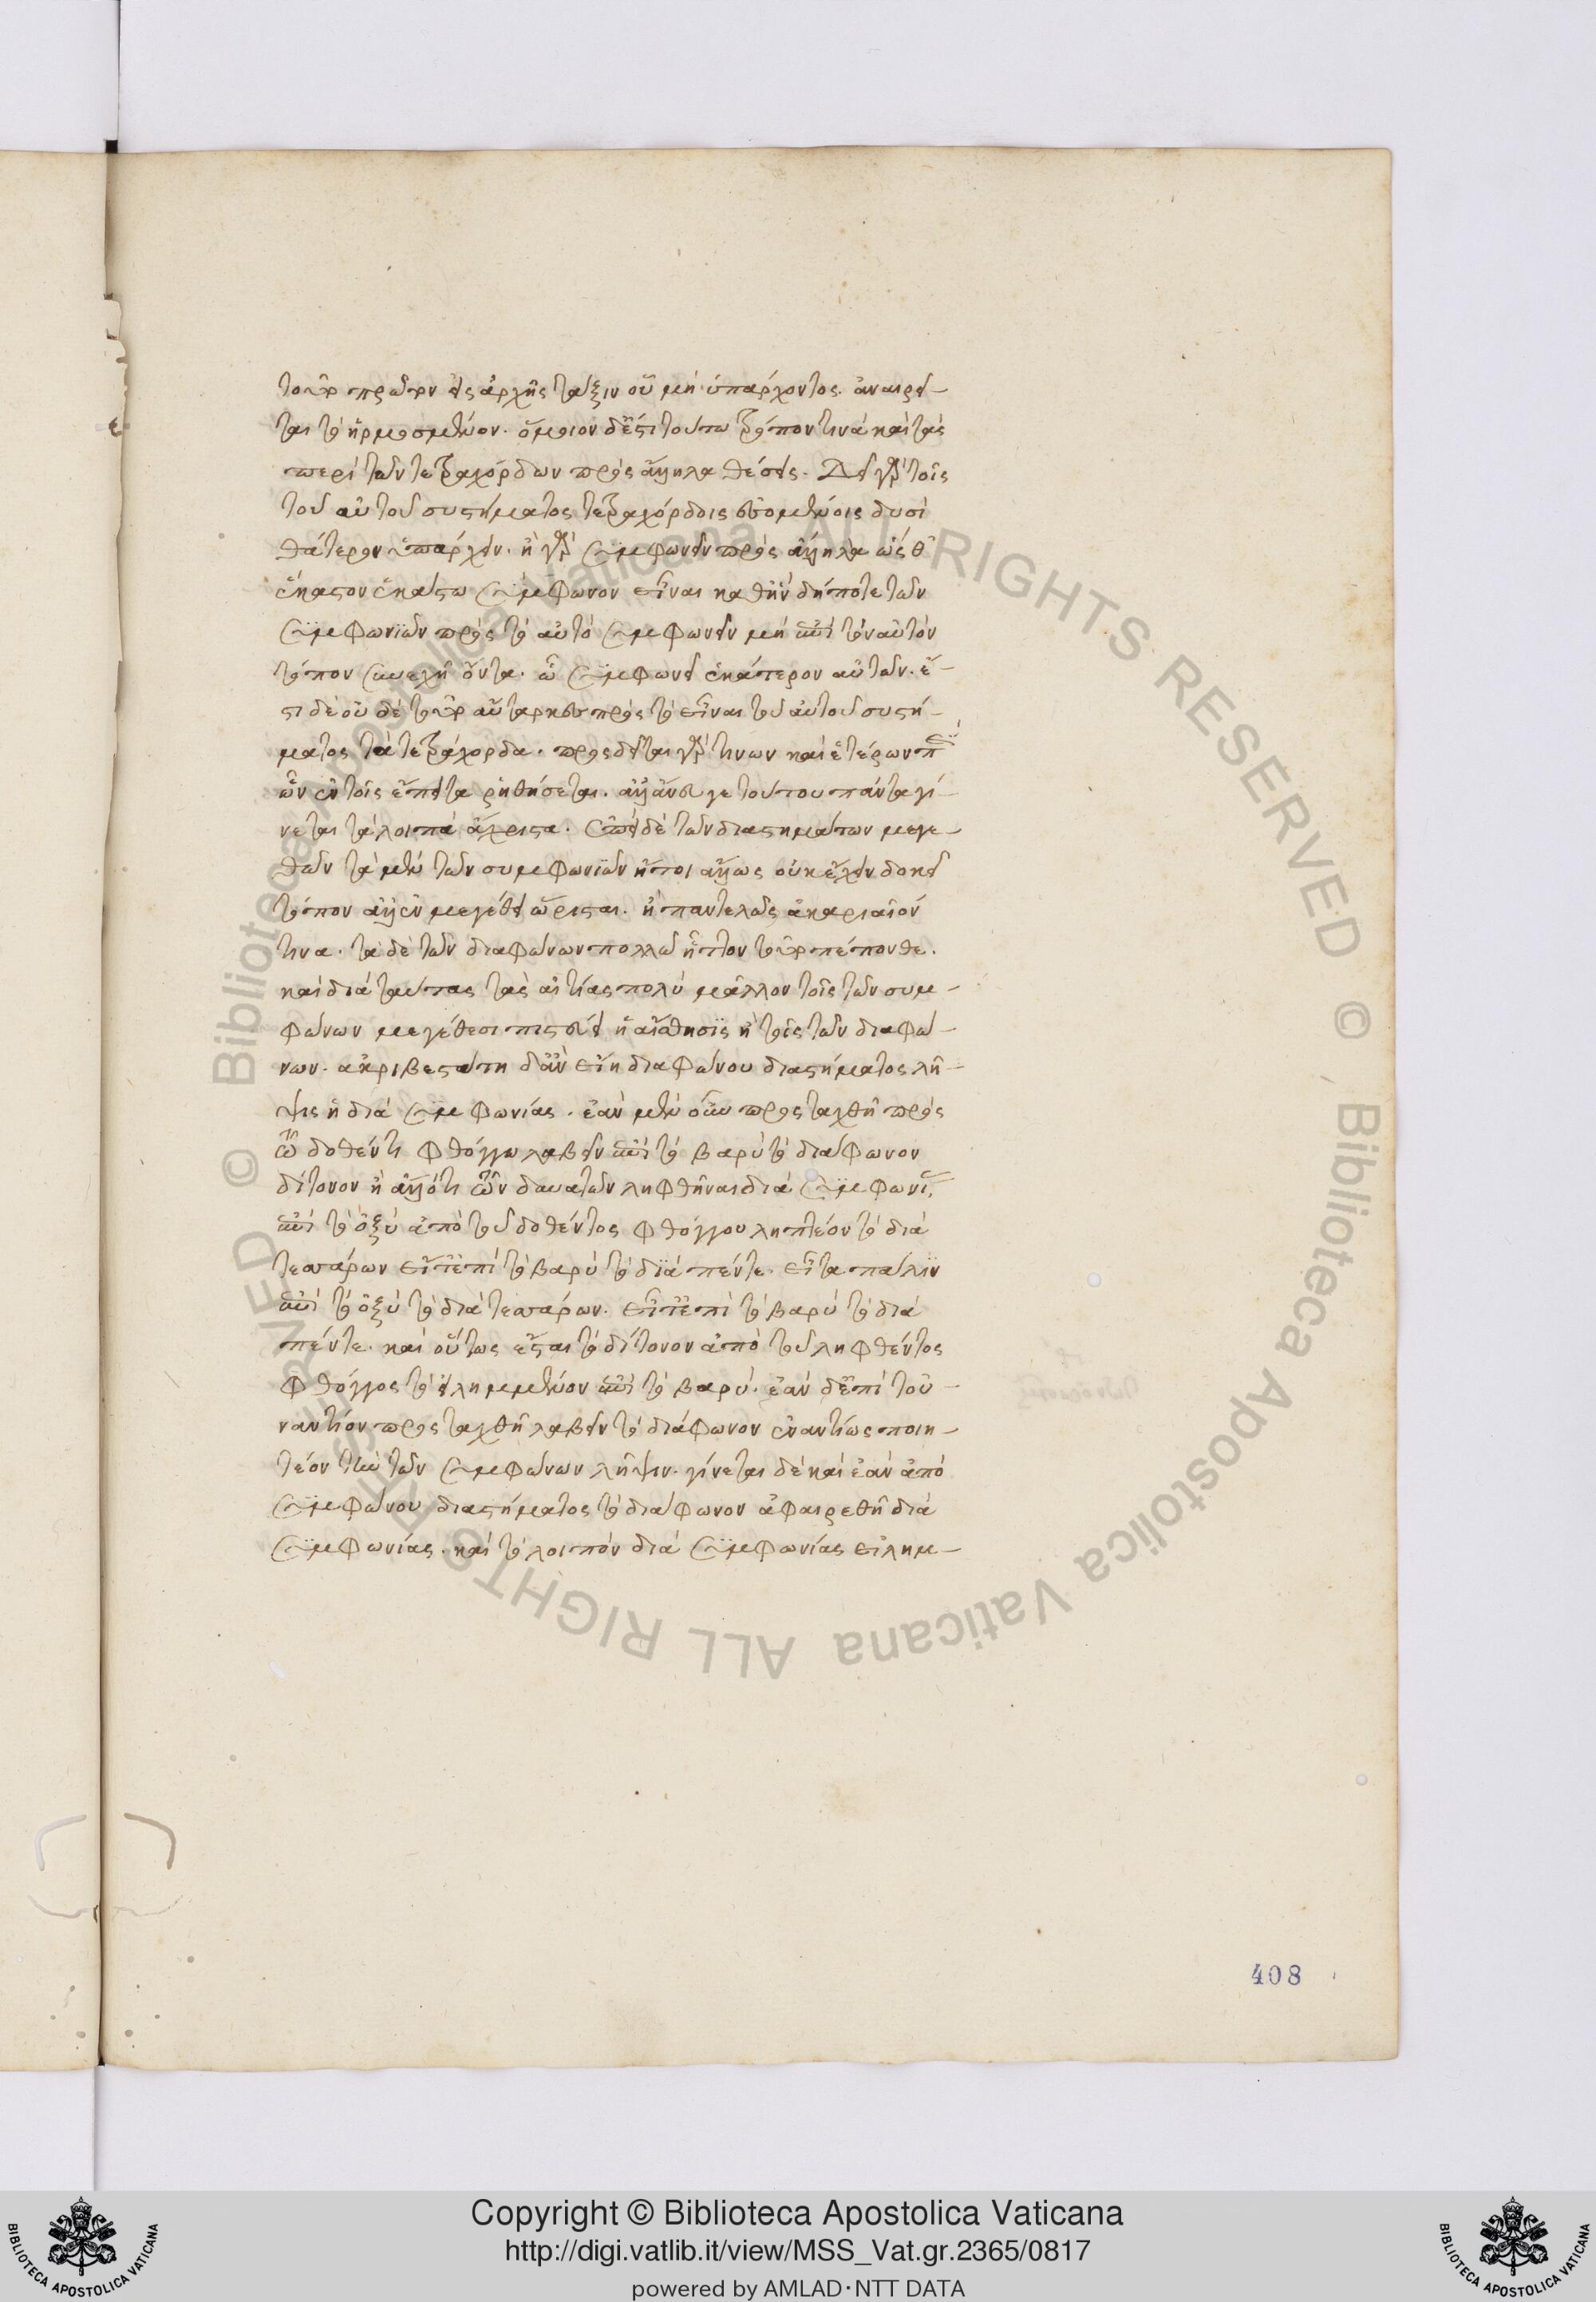 τοῦτο πρῶτον εἰς ἀρχῆς τάξιν οὗ μὴ ὑπάρχοντος. ἀναιρεῖ-
ται τὸ ἡρμοσμένον. ὅμοιον δ' ἐστὶ τούτω τρόπον τινὰ καὶ τὰς
περὶ τῶν τετραχόρδων πρὸς ἄλληλα θέσεις. Δεῖ γὰρ τοῖς
τοῦ αὐτοῦ συστήματος τετραχόρδοις ἐσομένοις δυσὶ
θάτερον ὑπάρχειν. ἢ γὰρ συμφωνεῖν πρὸς ἄλληλα ὡς θ'
ἕκαστον ἑκάστω σύμφωνον εἶναι καθ' ἣν δήποτε τῶν
συμφωνιῶν πρὸς τὸ αὐτὸ συμφωνεῖν μὴ ἐπὶ τὸν αὐτὸν
τόπον συνεχῆ ὄντα. ᾧ συμφωνεῖ ἑκάτερον αὐτῶν. ἔ-
στι δὲ οὐδὲ τοῦτο αὔταρκες πρὸς τὸ εἶναι τοῦ αὐτοῦ συστή-
ματος τὰ τετράχορδα. προσδεῖται γάρ τινων καὶ ἑτέρων π
ὧν ἐν τοῖς ἔπειτα ῥηθήσεται. ἀλλ' ἄνευ γε τούτου πάντα γί-
νεται τὰ λοιπὰ ἄχρηστα. ἐπεὶ δὲ τῶν διαστημάτων μεγε-
θῶν τὰ μὲν τῶν συμφωνιῶν ἤτοι ἄλλως οὐκ ἔχειν δοκεῖ
τόπον ἀλλ' ἐν μεγέθει ὥρισται. ἢ παντελῶς ἀκαριαῖόν
τινα. τὰ δὲ τῶν διαφώνων πολλῶ ἧττον τοῦτο πέπονθε.
καὶ διὰ ταύτας τὰς αἰτίας πολὺ μᾶλλον τοῖς τῶν συμ-
φώνων μεγέθεσι πιστεύει ἡ αἴσθησις ἢ τοῖς τῶν διαφώ-
νων. ἀκριβεστάτη δ' ἂν εἴη διαφώνου διαστήματος λῆ-
ψις ἡ διὰ συμφωνίας. ἐὰν μὲν οὖν προσταχθῆ πρὸς
τῶ δοθέντι φθόγγω λαβεῖν ἐπὶ τὸ βαρὺ τὸ διάφωνον
δίτονον ἢ ἄλλό τι τῶν δυνατῶν ληφθῆναι διὰ συμφωνί
ἐπὶ τὸ ὀξὺ ἀπὸ τοῦ δοθέντος φθόγγου ληπτέον τὸ διὰ
τεσσάρων εἶτ' ἐπὶ τὸ βαρὺ τὸ διὰ πέντε. εἶτα πάλιν
ἐπὶ τὸ ὀξὺ τὸ διὰ τεσσάρων. εἶτ' ἐπὶ τὸ βαρὺ τὸ διὰ
πέντε. καὶ οὕτως ἔσται τὸ δίτονον ἀπὸ τοῦ ληφθέντος
φθόγγος τὸ εἰλημμένον ἐπὶ τὸ βαρύ. ἐὰν δ' ἐπὶ τοὐ-
ναντίον προσταχθῆ λαβεῖν τὸ διάφωνον ἐναντίως ποιη-
τέον τὴν τῶν συμφώνων λῆψιν. γίνεται δὲ καὶ ἐὰν ἀπὸ
συμφώνου διαστήματος τὸ διάφωνον ἀφαιρεθῆ διὰ
συμφωνίας. καὶ τὸ λοιπὸν διὰ συμφωνίας εἰλημ-
408
© Biblioteca Apostolica Vaticana ALL RIGHTS RESERVED © Biblioteca Apostolica Vaticana ALL RIGHTS RESERVED
Copyright © Biblioteca Apostolica Vaticana
http://digi.vatlib.it/view/MSS_Vat.gr.2365/0817
powered by AMLAD·NTT DATA
BIBLIOTECA APOSTOLICA VATICANA
BIBLIOTECA APOSTOLICA VATICANA